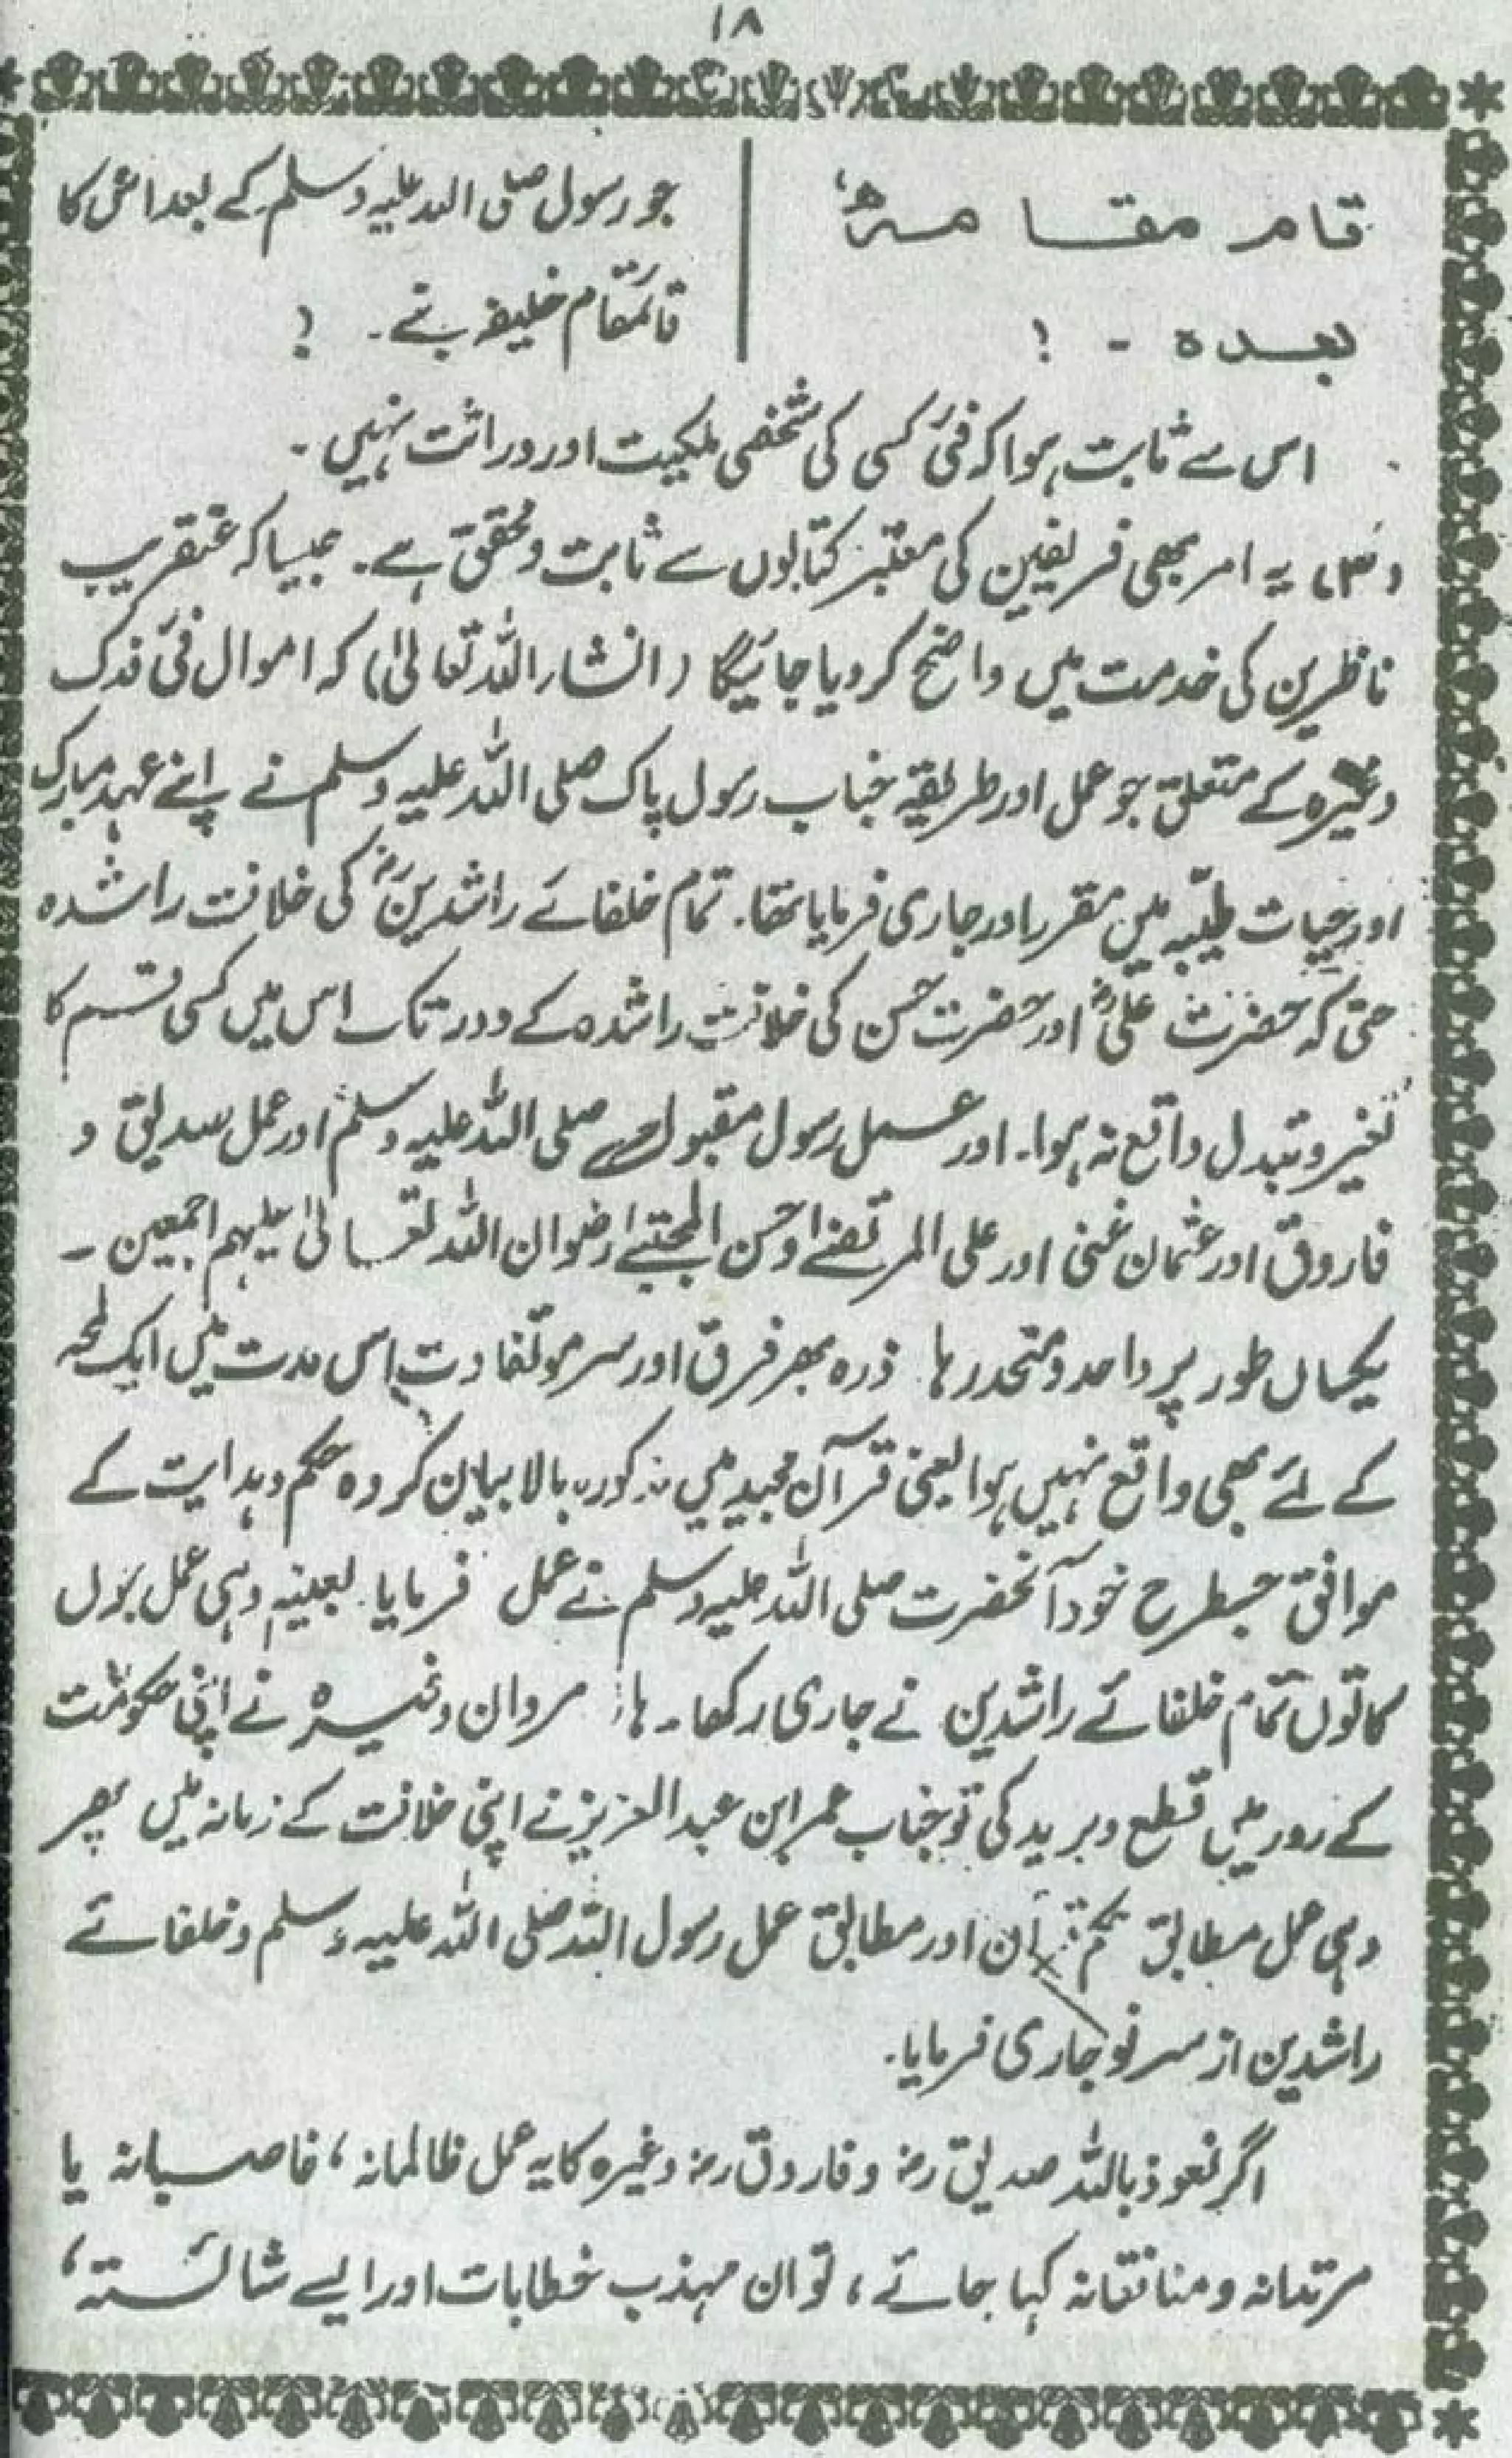 ۱۸
قام مقامہٗ
بعدہ - !
جو رسول صلی اللہ علیہ وسلم کے بعد اس کا
قائمقام خلیفہ بنے۔ !
اس سے ثابت ہوا کہ فئ کسی کی شخصی ملکیت اور وراثت نہیں۔
یہ امر بھی فریقین کی معتبر کتابوں سے ثابت و محقق ہے۔ جیسا کہ عنقریب
ناظرین کی خدمت میں واضح کر دیا جائیگا (انشاء اللہ تعالیٰ) کہ اموال فئ فدک
وغیرہ کے متعلق جو عمل اور طریقہ جناب رسول پاک صلی اللہ علیہ وسلم نے اپنے عہد مبارک
اور حیات طیّبہ میں مقرر اور جاری فرمایا تھا۔ تمام خلفائے راشدینؓ کی خلافت راشدہ
حتیٰ کہ حضرت علیؓ اور حضرت حسن کی خلافت راشدہ کے دور تک اس میں کسی قسم کا
تغیر و تبدل واقع نہ ہوا۔ اور عمل رسول مقبول صلی اللہ علیہ وسلم اور عمل صدیق و
فاروق اور عثمان غنی اور علی المرتضےٰ اور حسن المجتبےٰ رضوان اللہ تعالیٰ علیہم اجمعین۔
یکساں طور پر واحد و متحد رہا ذرہ بھر فرق اور سر مو تفاوت اس مدت میں ایک لمحہ
کے لئے بھی واقع نہیں ہوا یعنی قرآن مجید میں مذکورہ بالا بیان کردہ حکم و ہدایت کے
موافق جسطرح خود آنحضرت صلی اللہ علیہ وسلم نے عمل فرمایا بعینہٖ وہی عمل جوں
کا توں تمام خلفائے راشدین نے جاری رکھا۔ ہاں مروان وغیرہ نے اپنی حکومت
کے دور میں قطع و برید کی تو جناب عمر ابن عبد العزیز نے اپنی خلافت کے زمانہ میں پھر
وہی عمل مطابق حکم قرآن اور مطابق عمل رسول اللہ صلی اللہ علیہ وسلم و خلفائے
راشدین از سر نو جاری فرمایا۔
اگر نعوذ باللہ صدیق رض و فاروق رض وغیرہ کا یہ عمل ظالمانہ، غاصبانہ یا
مرتدانہ و منافقانہ کہا جائے، تو ان مہذب خطابات اور ایسے شائستہ،